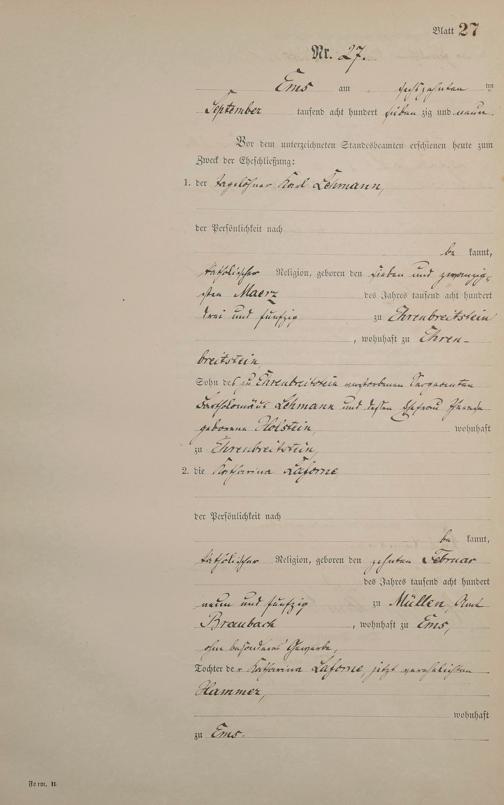 Blatt 27
Nr. 27.
Ems am sechszehnten ten
September tausend acht hundert sieben zig und neun.
Vor dem unterzeichneten Standesbeamten erschienen heute zum
Zweck der Eheschließung:
1. der Tagelöhner Karl Lehmann,
der Persönlichkeit nach
be kannt,
katholischer Religion, geboren den sieben und zwanzig-
sten Maerz des Jahres tausend acht hundert
drei und fünfzig zu Ehrenbreitstein
, wohnhaft zu Ehren-
breitstein
Sohn des zu Ehrenbreitstein verstorbenen
Bartholomäus Lehmann und dessen Ehefrau
geborene Holstein, wohnhaft
zu Ehrenbreitstein,
2. die Katharina Laforne
der Persönlichkeit nach
be kannt,
katholischer Religion, geboren den zehnten Februar
des Jahres tausend acht hundert
neun und fünfzig zu Müllen, Amt
Braubach, wohnhaft zu Ems,
ohne besonderes Gewerbe,
Tochter der Katharina Laforne, jetzt verehelichten
Hammer,
wohnhaft
zu Ems.
Form. B.